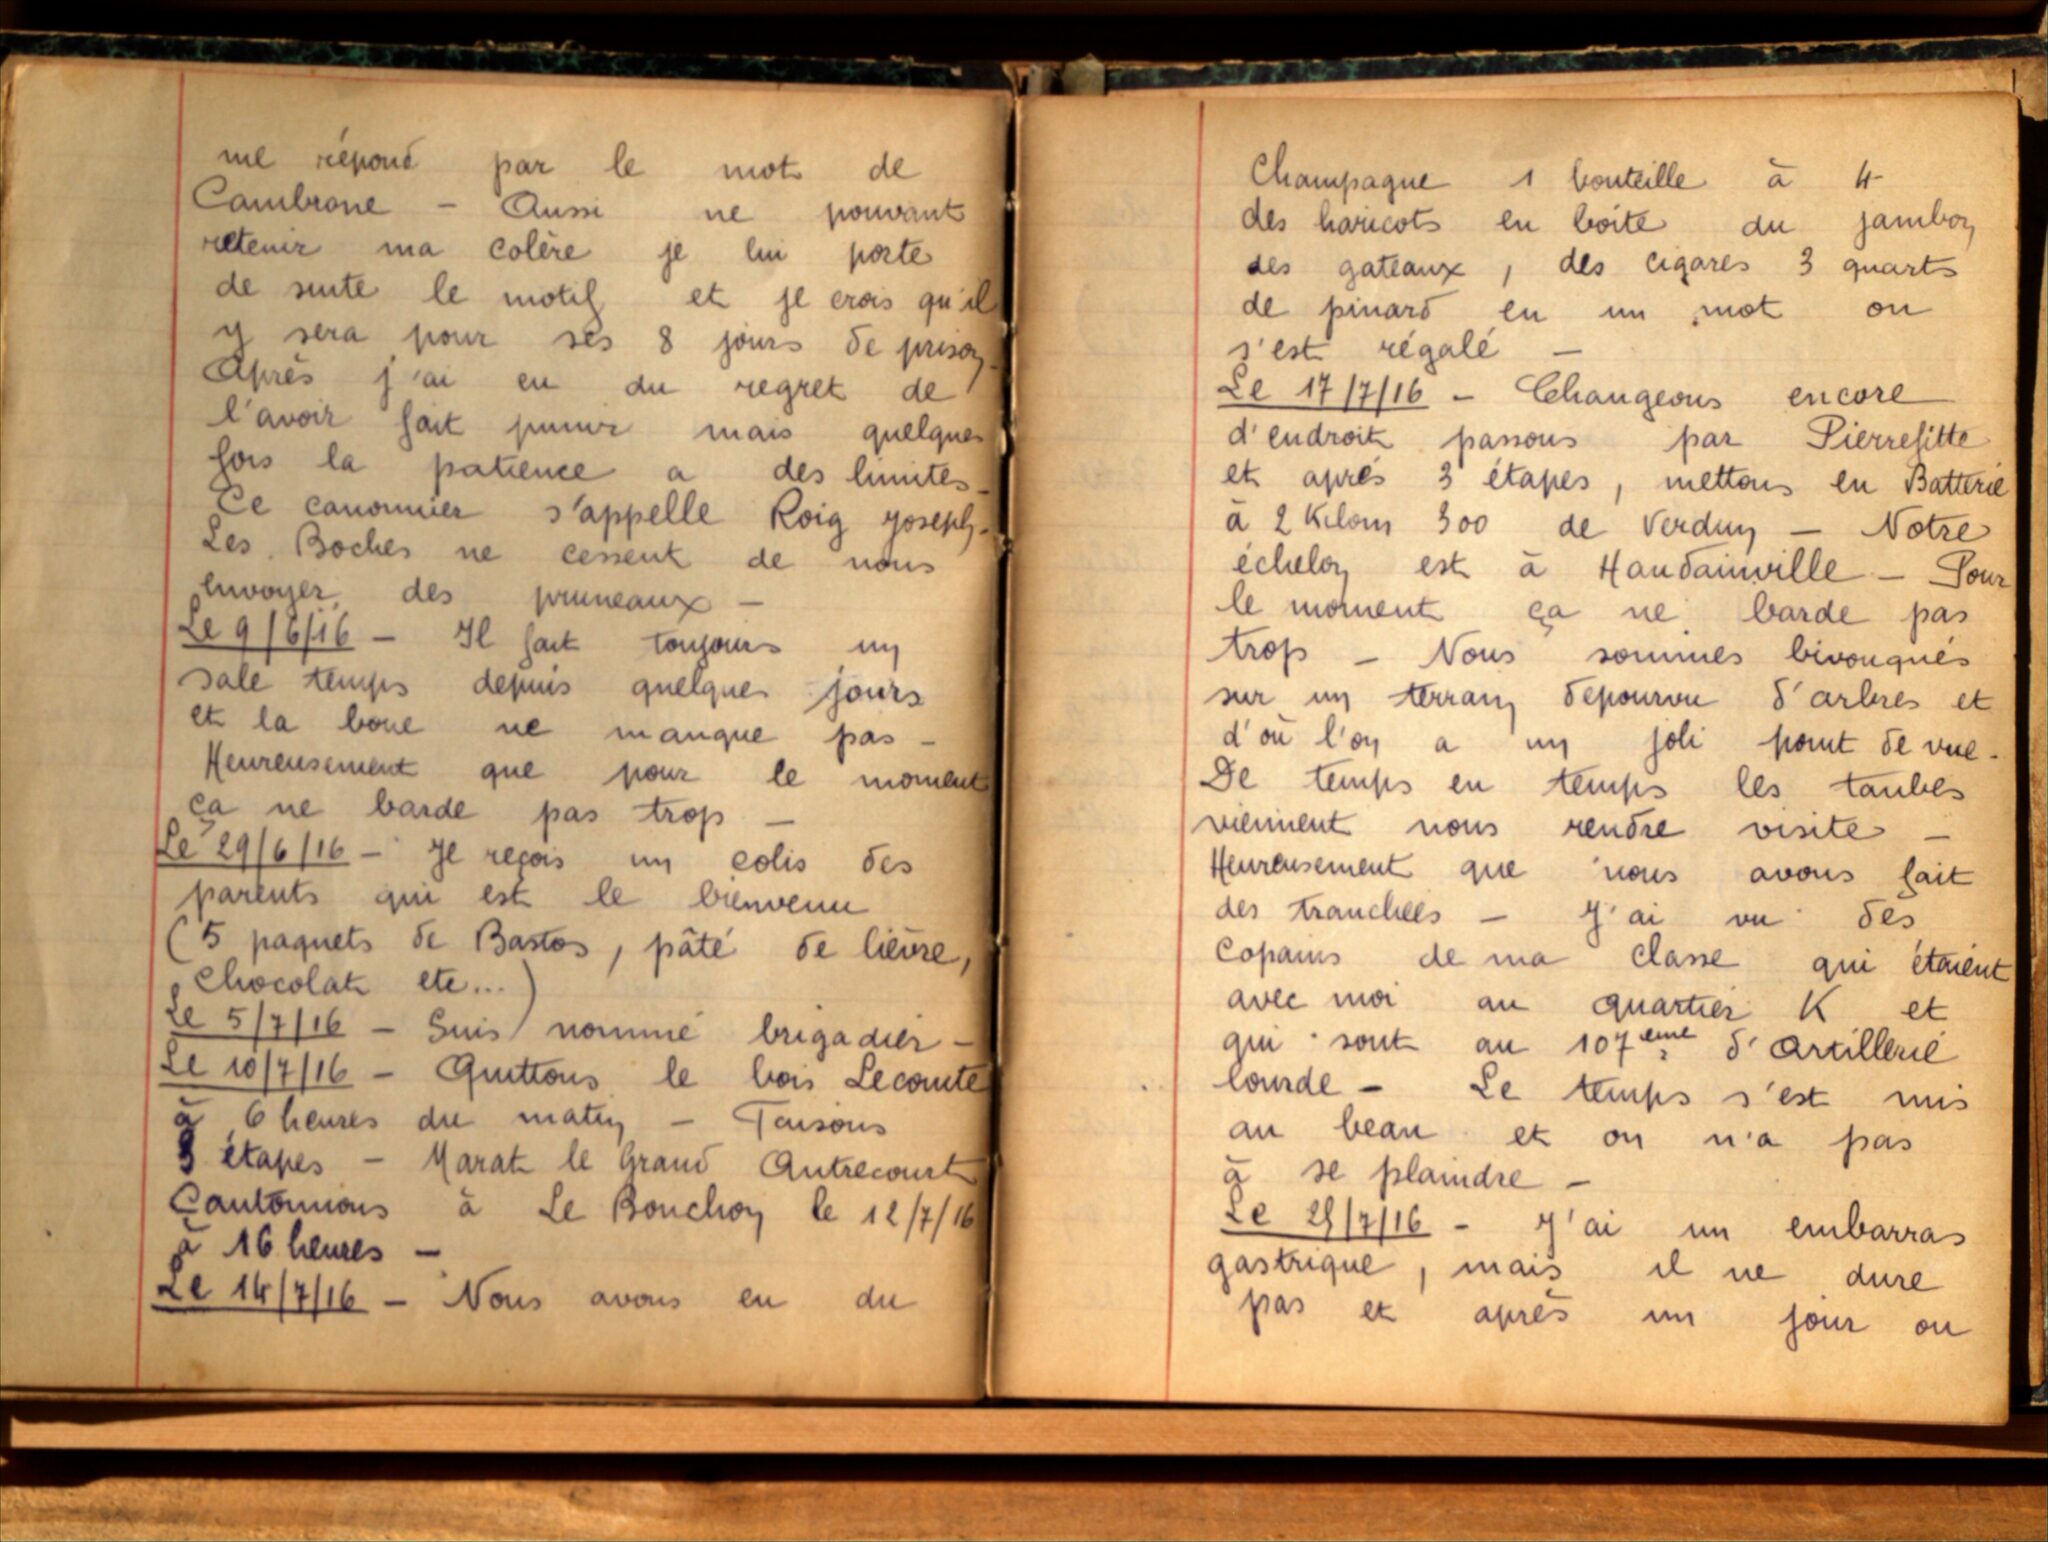 me répond par le mot de
Cambrone - Aussi ne pouvant
retenir ma colère je lui porte
de suite le motif et je crois qu'il
y sera pour ses 8 jours de prison -
Après j'ai eu du regret de
l'avoir fait punir mais quelques
fois la patience a des limites -
Ce canonnier s'appelle Roig Joseph -
Les Boches ne cessent de nous
envoyer des pruneaux -
Le 9/6/16 - Il fait toujours un
sale temps depuis quelques jours
et la boue ne manque pas -
Heureusement que pour le moment
ça ne barde pas trop -
Le 29/6/16 - Je reçois un colis des
parents qui est le bienvenu
(5 paquets de Bastos, pâté de lièvre,
chocolat etc...)
Le 5/7/16 - Suis nommé brigadier -
Le 10/7/16 - Quittons le bois Lecomte
à 6 heures du matin - Faisons
3 étapes - Marat le Grand Autrecourt
Cantonnons à Le Bouchon le 12/7/16
à 16 heures -
Le 14/7/16 - Nous avons eu du
Champagne 1 bouteille à 4
des haricots en boite du jambon
des gateaux, des cigares 3 quarts
de pinard en un mot on
s'est régalé -
Le 17/7/16 - Changeons encore
d'endroit passons par Pierrefitte
et aprés 3 étapes, mettons en Batterie
à 2 Kilom 300 de Verdun - Notre
échelon est à Haudainville - Pour
le moment ça ne barde pas
trop - Nous sommes bivouqués
sur un terrain dépourvu d'arbres et
d'où l'on a un joli point de vue -
De temps en temps les taubes
viennent nous rendre visite -
Heureusement que nous avons fait
des tranchées - J'ai vu des
copains de ma classe qui étaient
avec moi au quartier K et
qui sont au 107eme d'Artillerie
lourde - Le temps s'est mis
au beau et on n'a pas
à se plaindre -
Le 25/7/16 - J'ai un embarras
gastrique, mais il ne dure
pas et après un jour ou